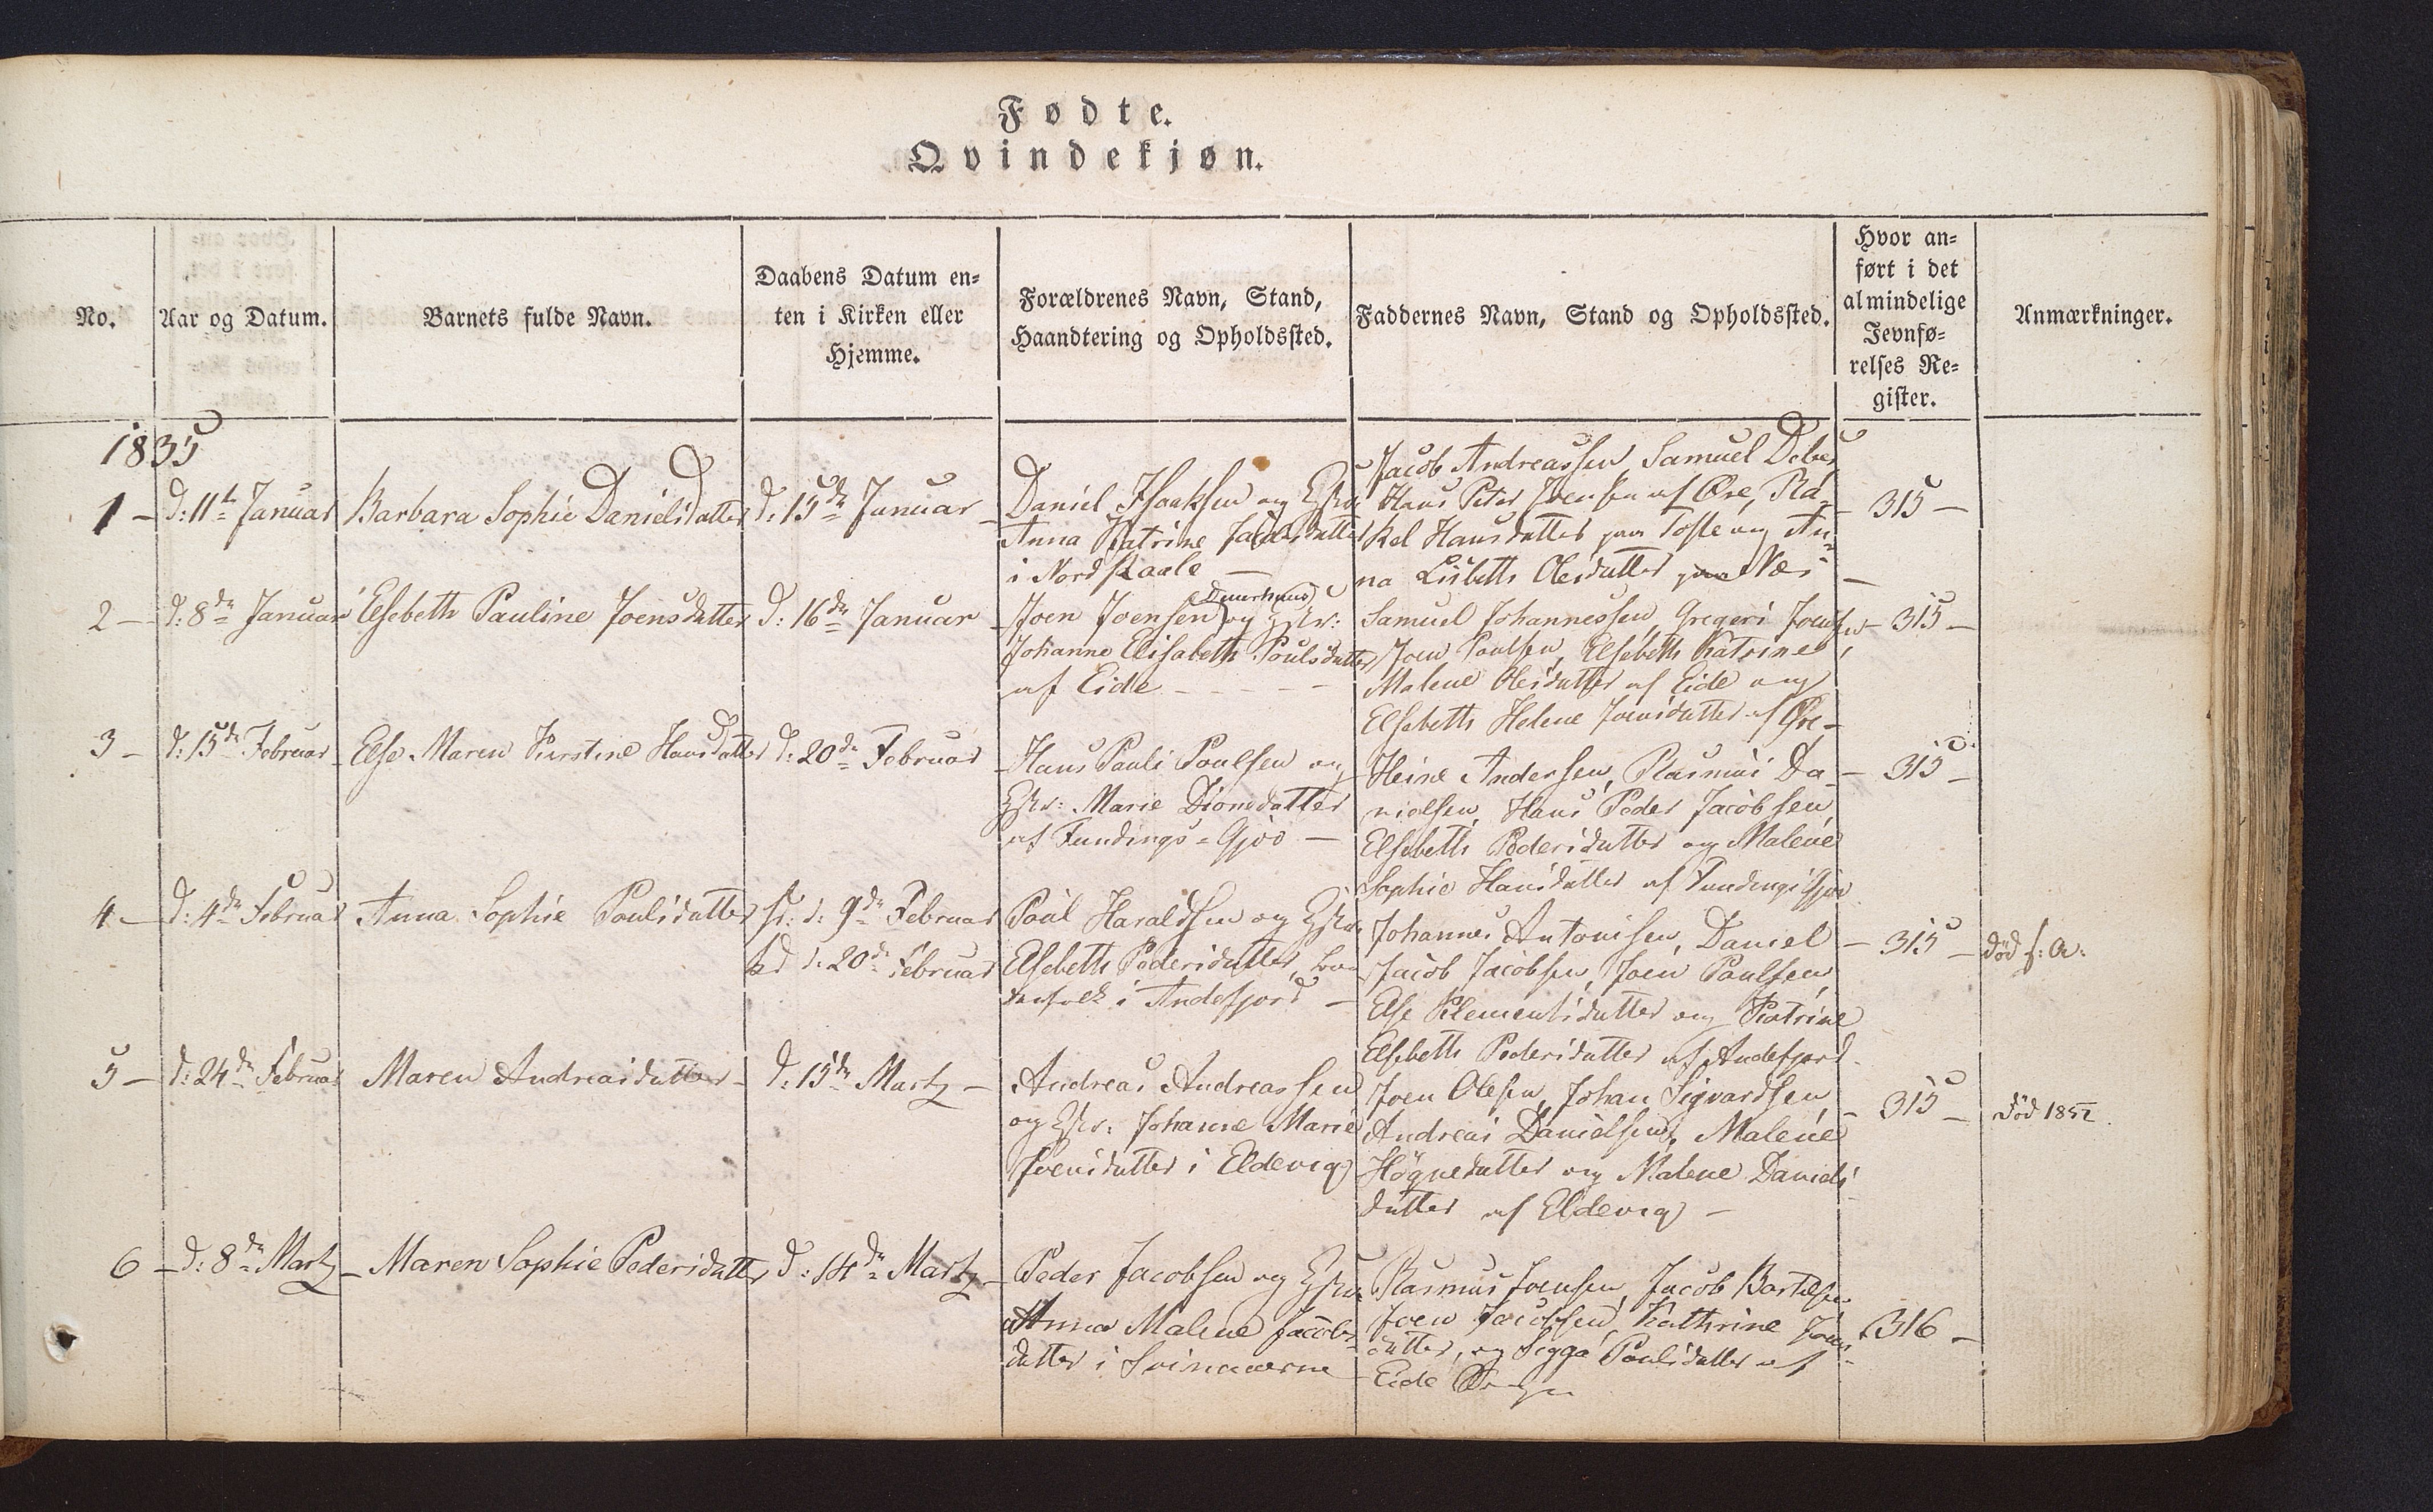 Fødte.
Qvindekjøn.
No.
Aar og Datum.
Barnets fulde Navn.
Daabens Datum en-
ten i Kirken eller
Hjemme.
Forældrenes Navn, Stand,
Haandtering og Opholdssted.
Faddernes Navn, Stand og Opholdssted.
Hvor an-
ført i det
almindelige
Jevnfø-
relses Re-
gister.
Anmærkninger.
1835
1 -
d: 11te Januar
Barbara Sophie Danielsdatter
d: 15de Januar -
Daniel Isaksen og Hstr:
Anna Katrine Jacobsdatter
i Nordskaale -
Jacob Andreassen, Samuel Debes
Hans Peter Joensen af Øre, Ra-
kel Hansdatter paa Tofte og An-
na Lisbeth Olesdatter paa Næs -
- 315 -
2 -
d: 8de Januar
Elsebeth Pauline Joensdatter
d: 16de Januar
Joen Joensen og Hstr:
Johanne Elisabeth Poulsdatter
af Eide - - - - -
Samuel Johannessen, Gregeri Joensen
Joen Poulsen, Elsebeth Katrine,
Malene Olesdatter af Eide og
Elsebeth Helene Joensdatter af Øre -
- 315 -
3 -
d: 15de Februar
Else Maren Kirstine Hansdatter
d: 20de Februar
Hans Pauli Poulsen og
Hstr: Marie Dionsdatter
af Fundings-Gjov -
Heine Andersen, Rasmus Da-
nielsen, Hans Peder Jacobsen
Elsebeth Pedersdatter og Malene
Sophie Hansdatter af Fundings Gjov
- 315 -
4 -
d: 4de Februar
Anna Sophie Poulsdatter
d: 9de Februar
d: 20de Februar
Poul Haraldsen og Hstr:
Elsebeth Pedersdatter,
i Andefjord -
Johannes Antonisen, Daniel
Jacob Jacobsen, Joen Poulsen,
Else Klementsdatter og Katrine
Elsebeth Pedersdatter af Andefjord
- 315 -
død s: A:
5 -
d: 24de Februar
Maren Andreasdatter -
d: 15de Martz -
Andreas Andreassen
og Hstr: Johanne Marie
Joensdatter i Eldevig
Joen Olesen, Johan Sigvardsen
Andreas Danielsen, Malene
Høgnesdatter og Malene Daniels
datter af Eldevig -
- 315 -
død 1852.
6 -
d: 8de Martz
Maren Sophie Pedersdatter
d: 14de Martz
Peder Jacobsen og Hstr:
Anna Malene Jacobs-
datter i Svinaaerne
Rasmus Joensen, Jacob Bartelsen
Joen Jacobsen, Kathrine Joens-
datter, og Sigga Poulsdatter af
Eide
316 -